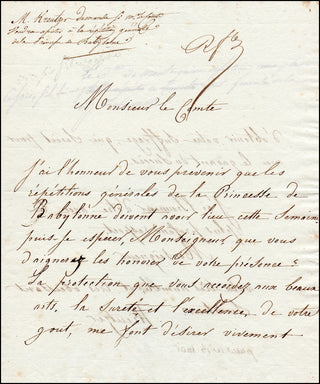 M. Kreutzer demande si
à la répétition générale
de la Princesse de Babylone
Monsieur le Comte
J'ai l'honneur de vous prevenir que les
répétitions générales de la Princesse de
Babylonne doivent avoir lieu cette Semaine
puis je esperer, Monseigneur que vous
daignerez les honorer de votre présence?
la protection que vous accordez aux beaux
arts, la sureté et l'excellence, de votre
gout, me font désirer vivement